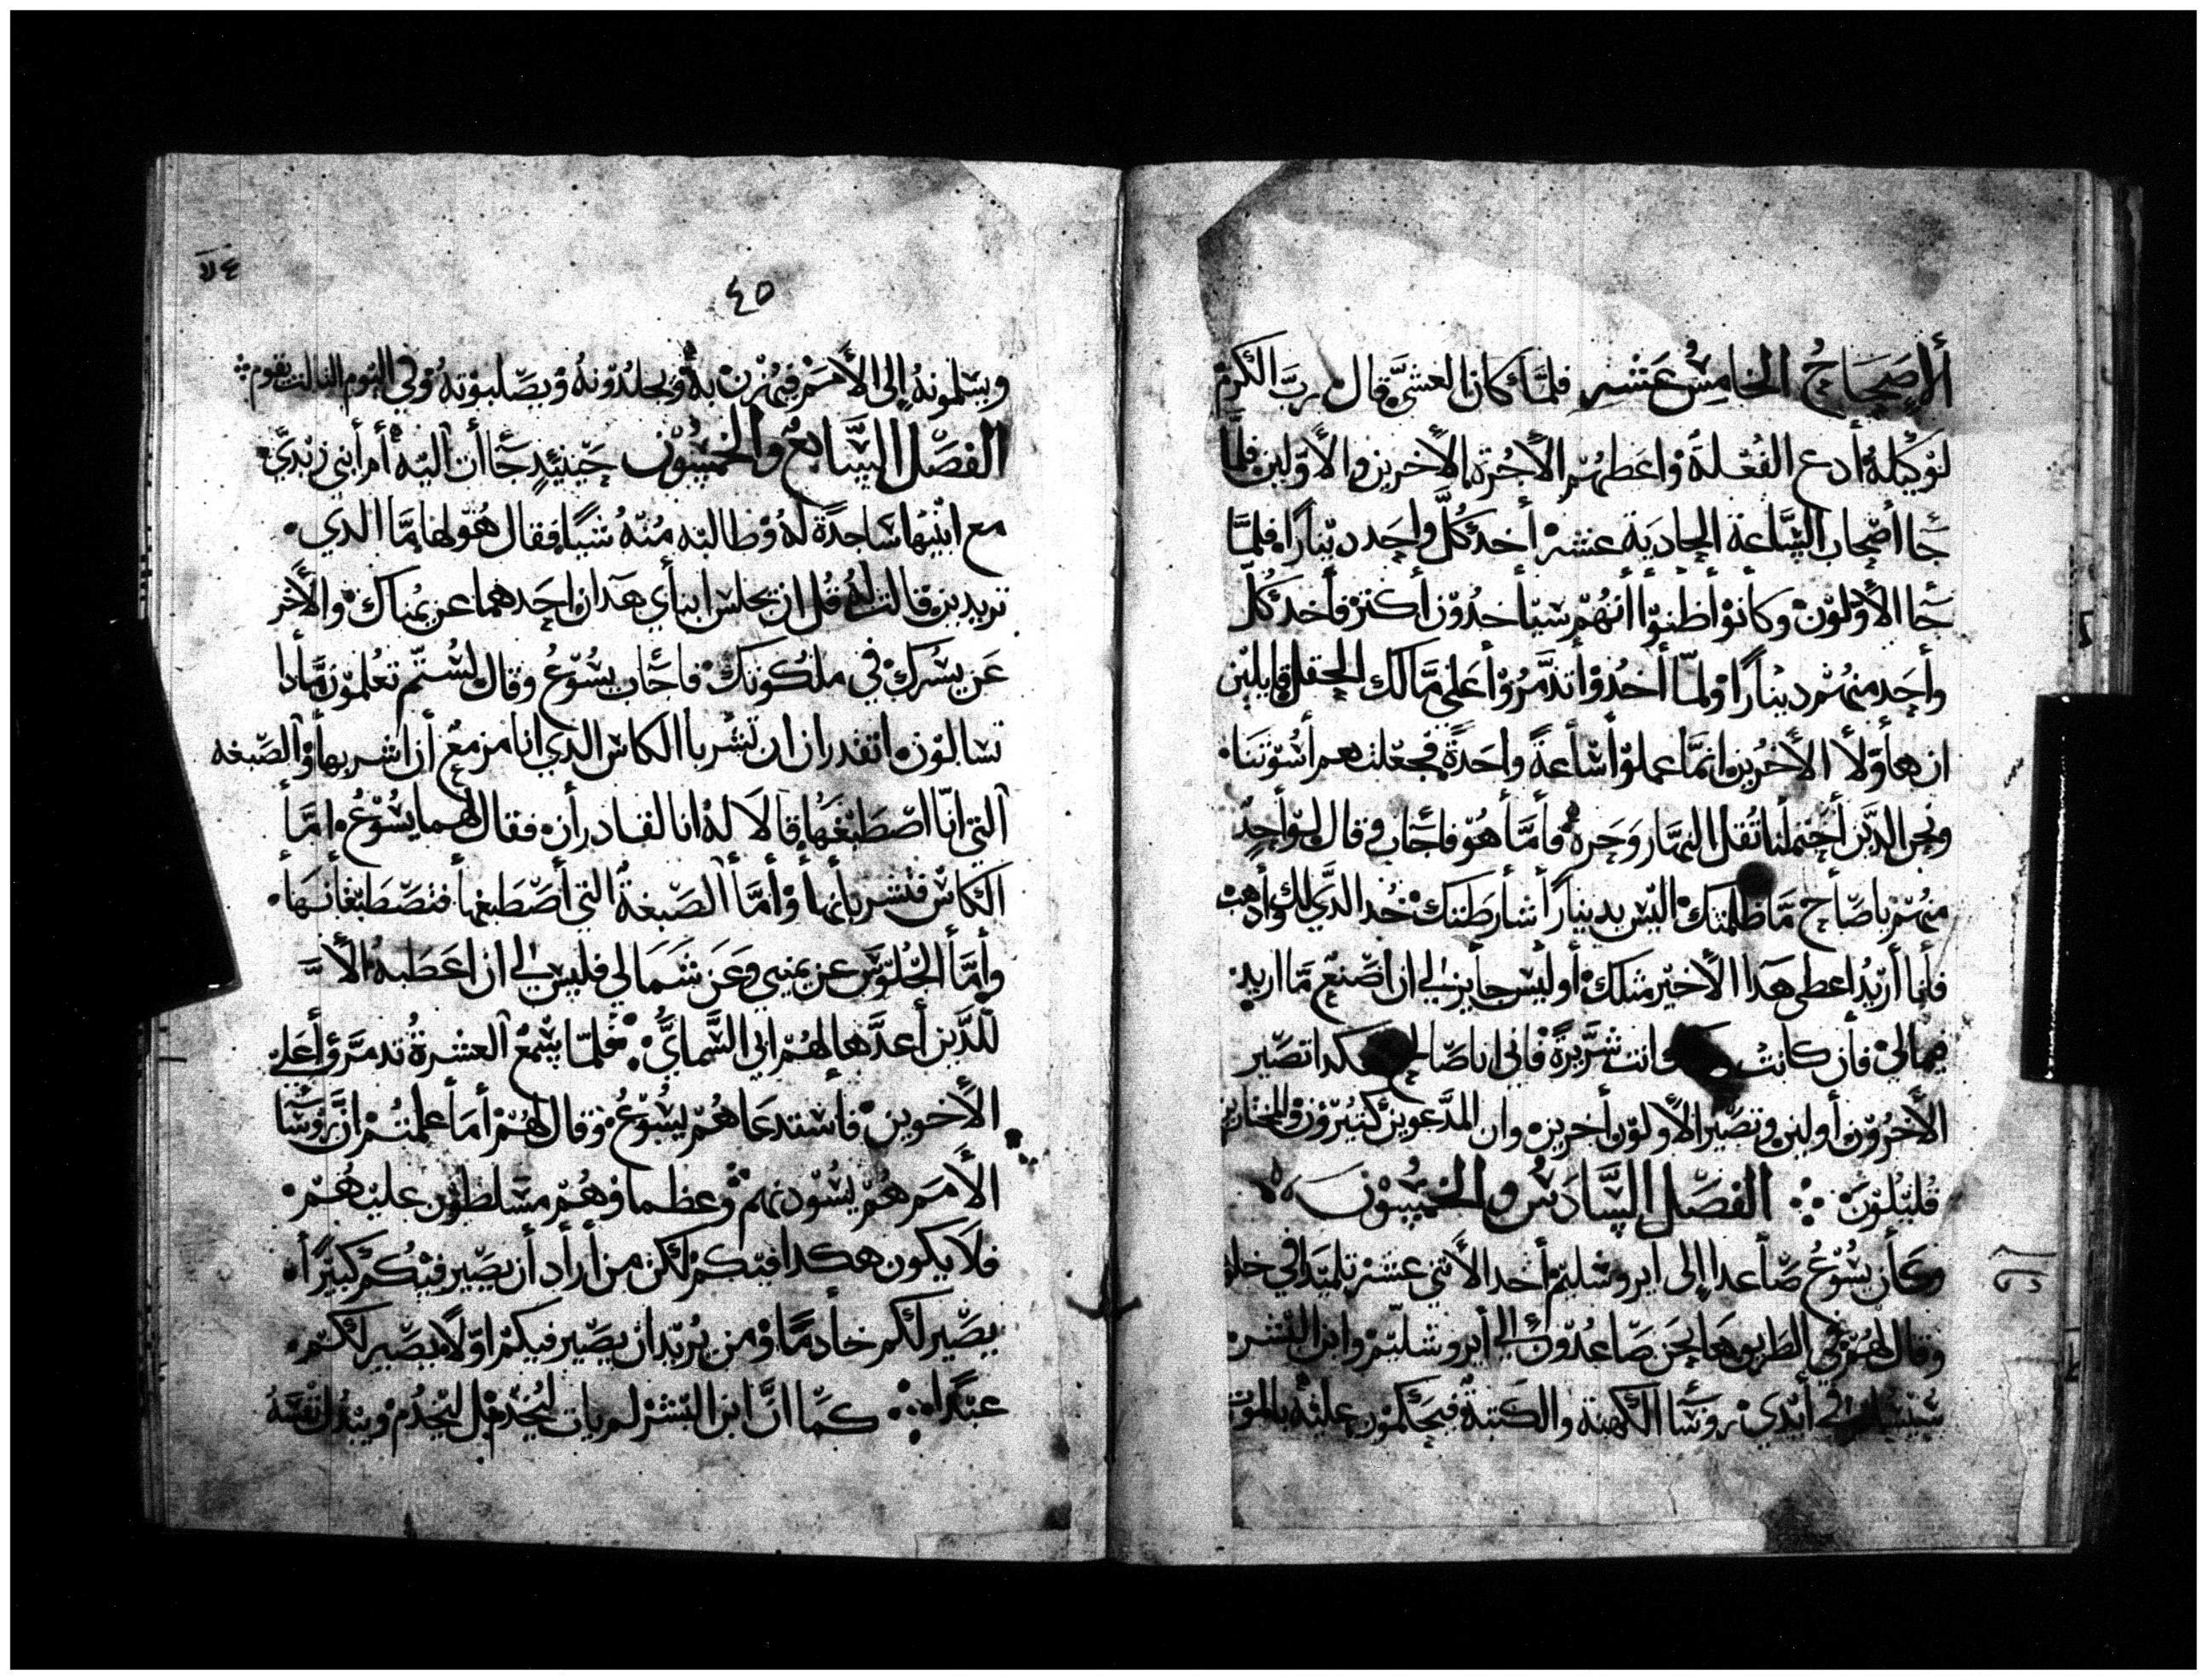 ألإصحاحُ الخامسُ عشر فلمَّا كان العشيَّ قال ربَّ الكرم
لوكيله أدع الفعلة واعطهم الأجرة الأخرين والأولين فلمَّا
جَّا أصحاب السَّاعة الحادية عشر أخد كلَّ واحد دينارًا فلمَّا
جَّا الأوَّلون وكانوا أظنوا أنهم سيأخدون أكثر فأخد كلَّ
وأحد منهم دينارًا ولمَّا أخدوا تدمَّروا أعلى مَّالك الحقل قايلين
ان هأولأ الأخرين انمَّا عملوا سَاعةً وأحدةً فجعلتهم أسوتنا
ونحن الدين أحتملنا ثقل النهار وحره فأمَّا هو فاجَّاب وقال لوأحدٍ
منهم ياصَّاح مَّا ظلمتك اليس بدينار أشارطتك خد الدَّي لك وأدهب
فأنا أريد اعطى هدا الأخير مثلك أو ليس جأيز لي ان اصنع مَّا اريد
بمالي فأن كانت وانت شرّيرة فاني انا صَالح هكدا تصير
الأخرون أولين وتصير الأولون أخرين وان المدعوين كثيرون والمختارين
قليلون الفصل السَّادسُ والخمسون
وكأن يسُوعُ صَّاعدا إلى ايروشليم أخد الأثني عشر تلميدا في خلو
وقال لهم في الطريق هَا نحن صَّاعدون إلى أيروشليم وابن البشر
سيسلم في أيدي روسَّا الكهنة والكتبة فيحكمون عليه بالموت
٤٥
ويسلمونه إلى الأمم فيهزن به ويجلدونه ويصلبوته وفي اليوم الثالث يقوم
الفصل السَّابعُ والخمسُون حينيدٍ جَّاأت اليه أم أبني زبدي
مع ابنيها سَاجدة له وطالبته منه شيًا فقال هو لها مَّا الدي
تريدين قالت له قل ان يجلس ابنأي هدان احدهما عن يمناك والأخر
عن يسرك في ملكوتك فاجَّاب يسُوعُ وقال لستم تعلمون مَّادا
تسالون اتقدران ان تشربا الكاس الدي انا مزمع أن اشربها والصبغه
التي انا اصطبغها قالا له انا لقادرأن فقال لهما يسُوعُ امَّا
الكاس فتشربأنها وأمَّا الصبغة التي أصطبغها فتصطبغأنها
وأمَّا الجلوس عن يميني وعن شمالي فليس لي ان اعطيه الأ
للَّدين أعدَّها لهم ابي السَّماي فلمّا سمع العشرة تدمروا على
الأخوين فأستدعاهم يسُوعُ وقال لهم أما علمتم انَّ روسَّا
الأمم هم يسودنهم وعظماوهم مسلطون عليهم
فلا يكون هكدا فيكم لكن من أرأد أن يصير فيكم كبيرًا
يصير لكم خأدمًا ومن يريد ان يصير فيكم اولا يصير لكم
عبدًا كمّا انّ ابن البشر لم يات ليُخدم بل ليَخدم ويبدل نفسه